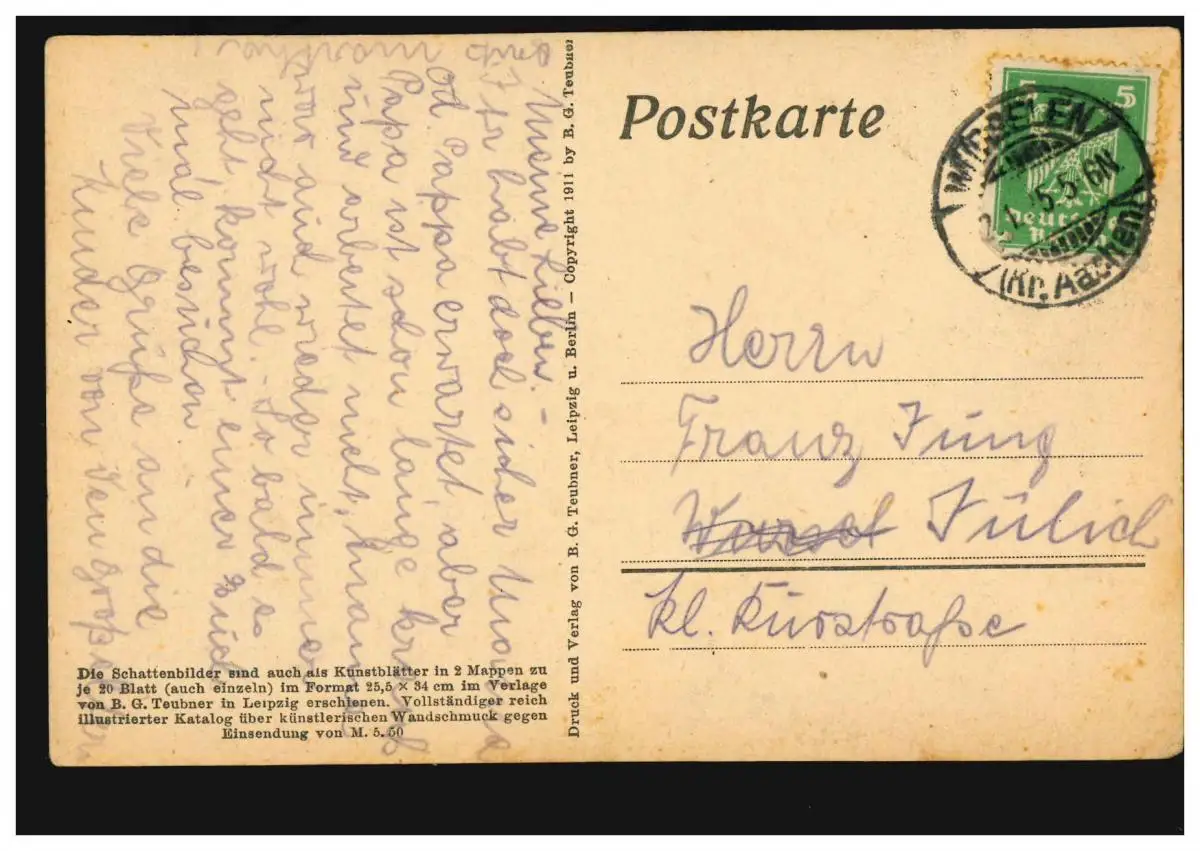 Postkarte
5 5
WÜRSELEN
(Kr. Aachen)
5.5. 6N
Deutsches
Reich
Herrn
Franz Jung
Jülich
kl. Kurstraße
Druck und Verlag von B. G. Teubner, Leipzig u. Berlin — Copyright 1911 by B. G. Teubner
Meine Lieben. –
Ihr habt doch sicher Mama
od. Pappa erwartet, aber
Papa ist schon lange krank
und arbeitet nicht, Mama
war auch wieder immer
nicht wohl. – So bald es
geht kommt einer Euch
mal besuchen
Viele Grüße an die
Kinder von den großeltern
Die Schattenbilder sind auch als Kunstblätter in 2 Mappen zu
je 20 Blatt (auch einzeln) im Format 25,5 × 34 cm im Verlage
von B. G. Teubner in Leipzig erschienen. Vollständiger reich
illustrierter Katalog über künstlerischen Wandschmuck gegen
Einsendung von M. 5.50